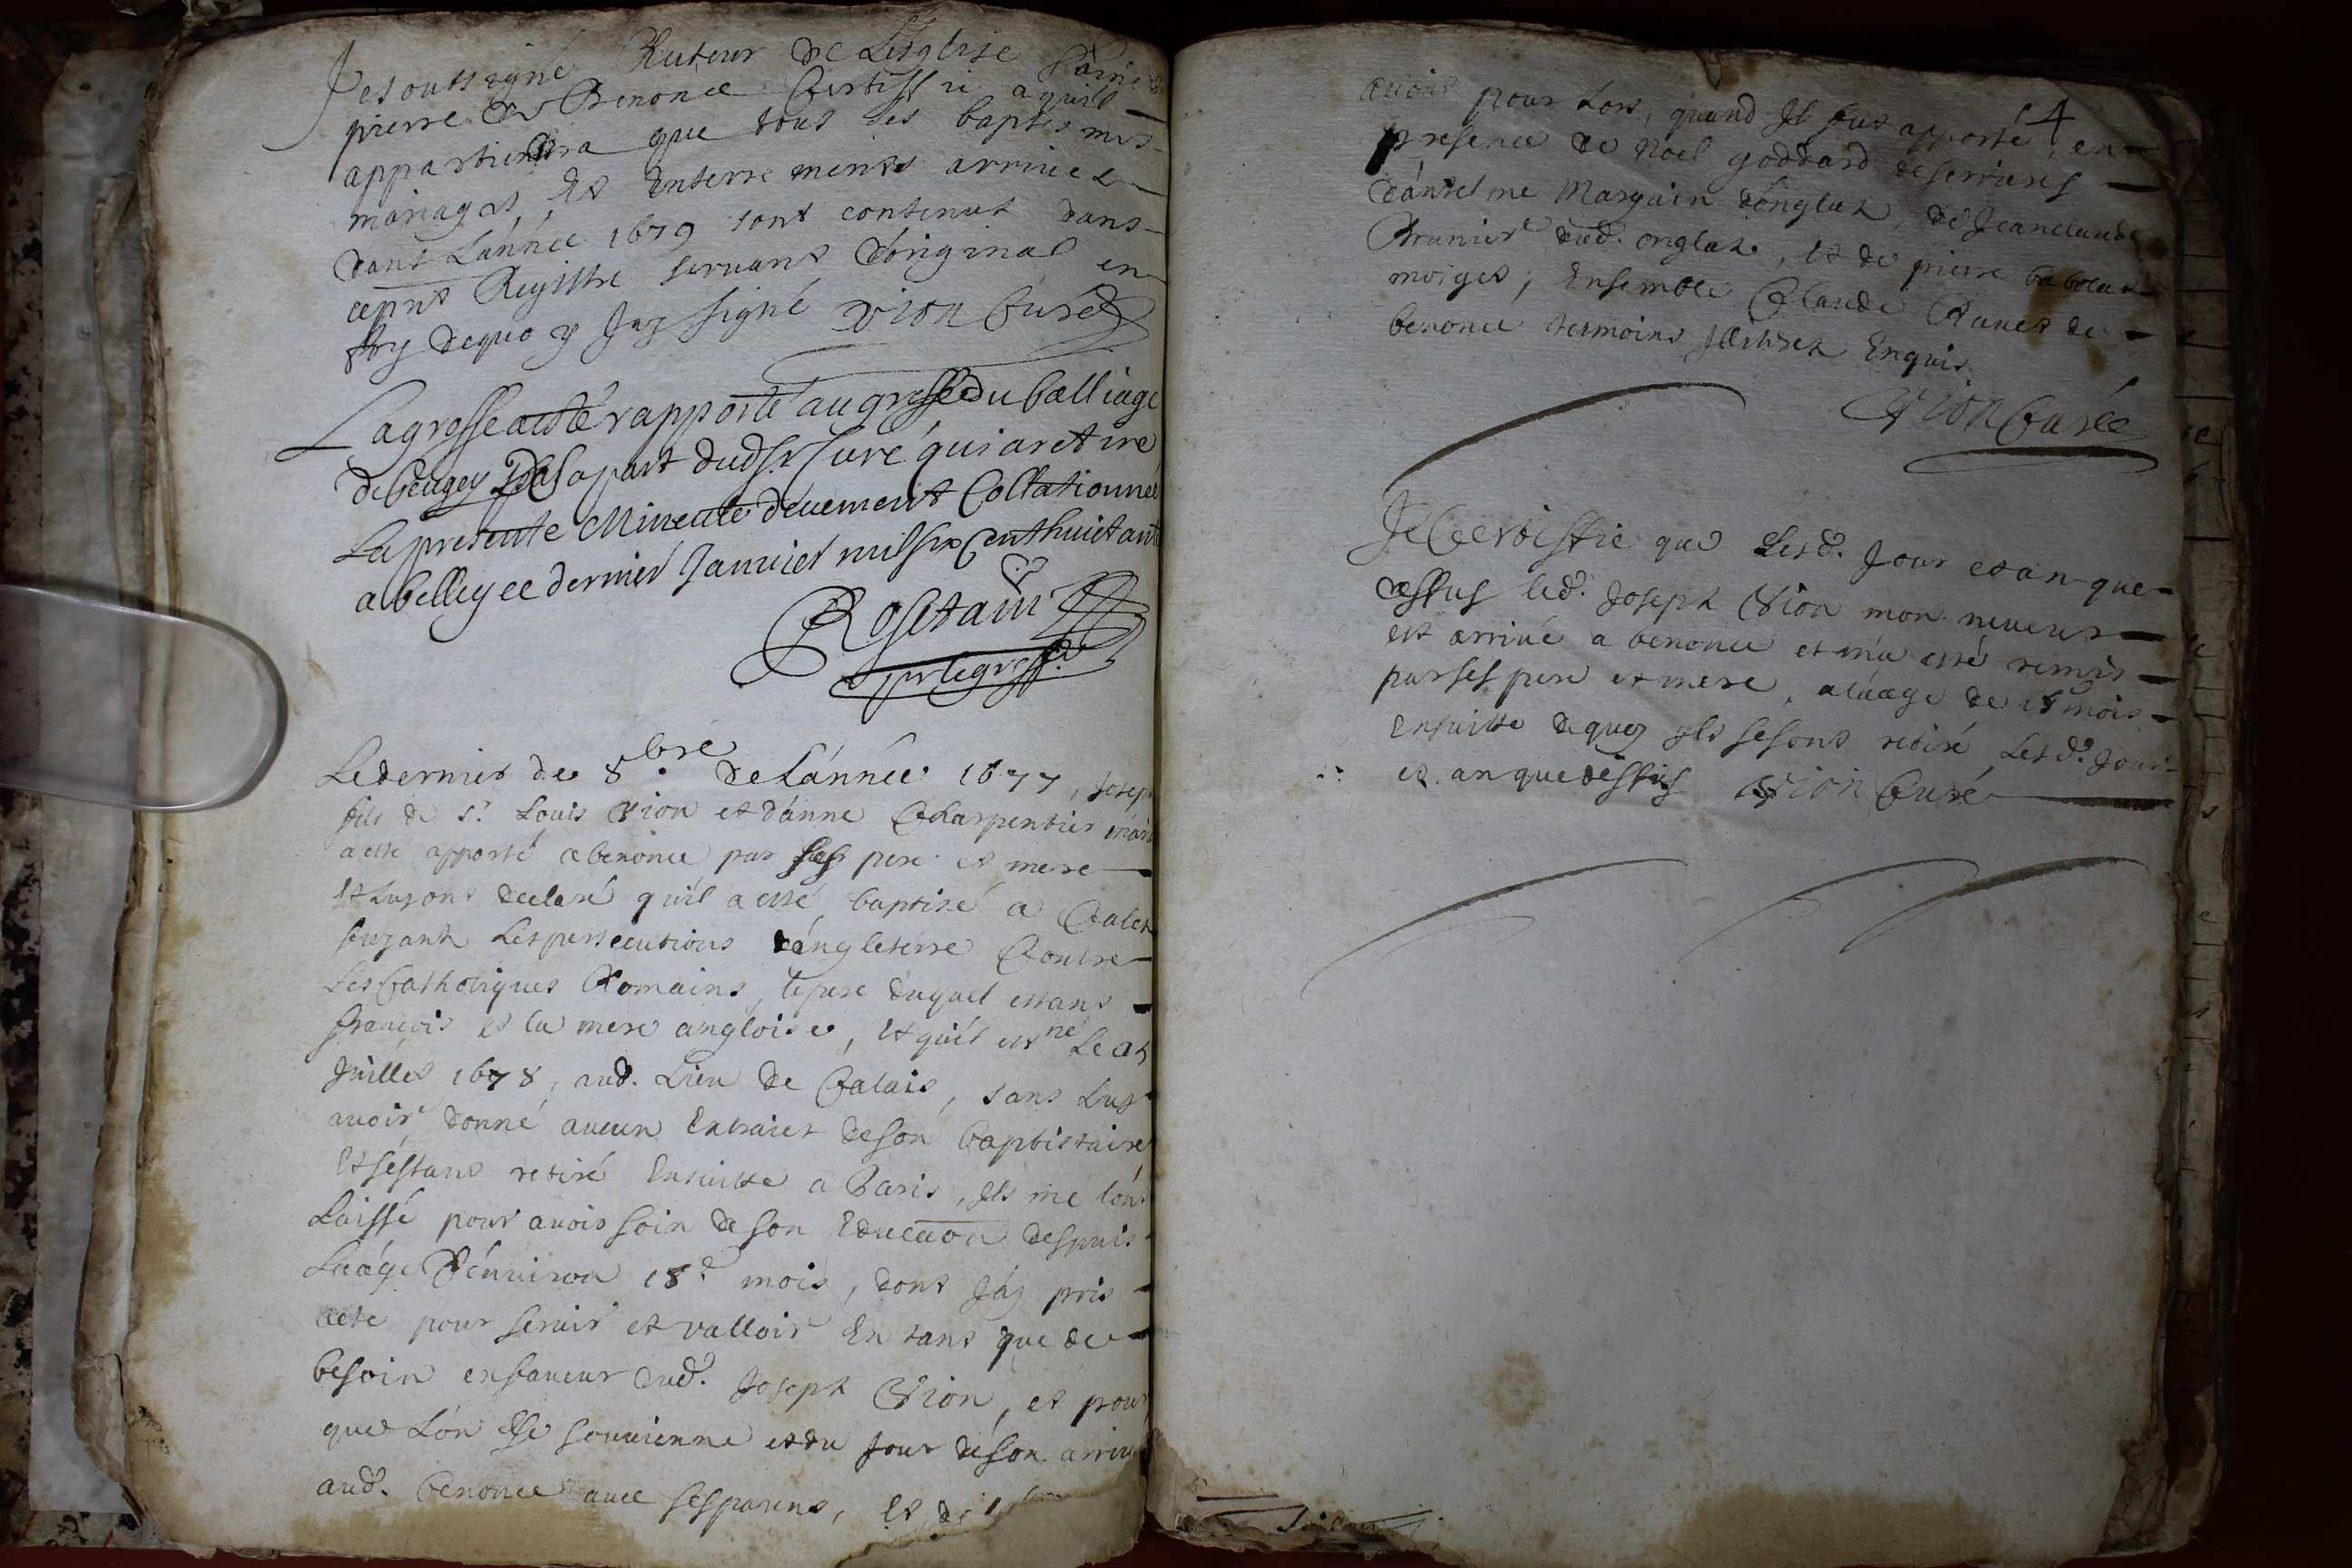 Je soubsigné Recteur de L'esglise Sainct
pierre de Benonce Certiffie a qu'il
appartiendra que tous les baptesmes
mariages, Et Enterrements arrivés
dans L'année 1679 sont contenus dans
ce pnt Registre servant d'original en
foy dequoy J'ay signé Vion Curé
La grosse a esté rapporté au greffe du balliage
de beugey de la part dud. Sr Curé qui a retiré
La presente Mineute deuement Collationnée
a belley ce dernier Januier mil six Cent huictante
Rosetain
pr le greffe
Le dernier de 8bre de L'année 1677, Joseph
fils de Sr. Louis Vion et d'anne Charpentier
a esté apporté a benonce par ses pere et mere
Et luy ont declaré qu'il a esté baptisé a Calez
fuyant Les persecutions d'engleterre Contre
Les Catholiques Romains, le pere duquel estans
françois et la mere angloise, et qu'il est né Le
Juillet 1678, aud. Lieu de Calais, sans Luy
avoir donné aucun Extraict de son baptistaire
Et s'estans retiré Ensuitte a Paris, Ils me l'ont
Laissé pour avoir soin de son Educaon despuis
L'aáge d'environ 18 mois, dont J'ay pris
acte pour servir et valloir En tant que de
besoin en faveur dud. Joseph Vion, et pour
que L'on se souvienne et du Jour de son arrivé
aud. benonce avec ses parens, Et de
4
avoit pour Lors, quand Il fut apporté, en
presence de Noel goddard de serrieres
d'antelme Margain d'onglaz, de Jeanclaude
Brunier dud. onglaz, et de pierre babolat
moiges, Ensemble Claude Ravet de
benonce tesmoins Illitrez Enquis.
Vion Curé
Je Certiffie que Lesd. Jour et an que
dessus led. Joseph Vion mon neveu
est arrivé a benonce et m'a esté remis
par ses pere et mere, a l'aage de 18 mois
ensuitte dequoy Ils se sont retiré Lesd. Jour
et an que dessus Vion Curé